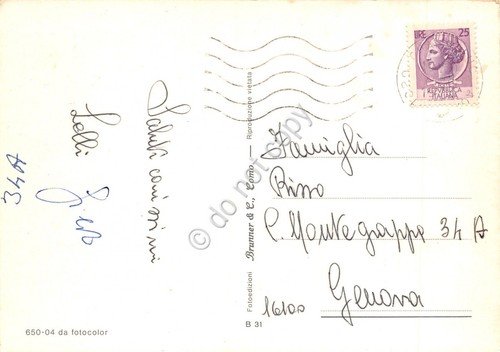 Saluti carissimi
Lelli
34A
650-04 da fotocolor
Fotoedizioni Brunner & C., Como — Riproduzione vietata
B 31
L̶I̶RE 25
REPUBBLICA
ITALIANA
Famiglia
Risso
C. Montegrappa 34 A
16100 Genova
© do not copy